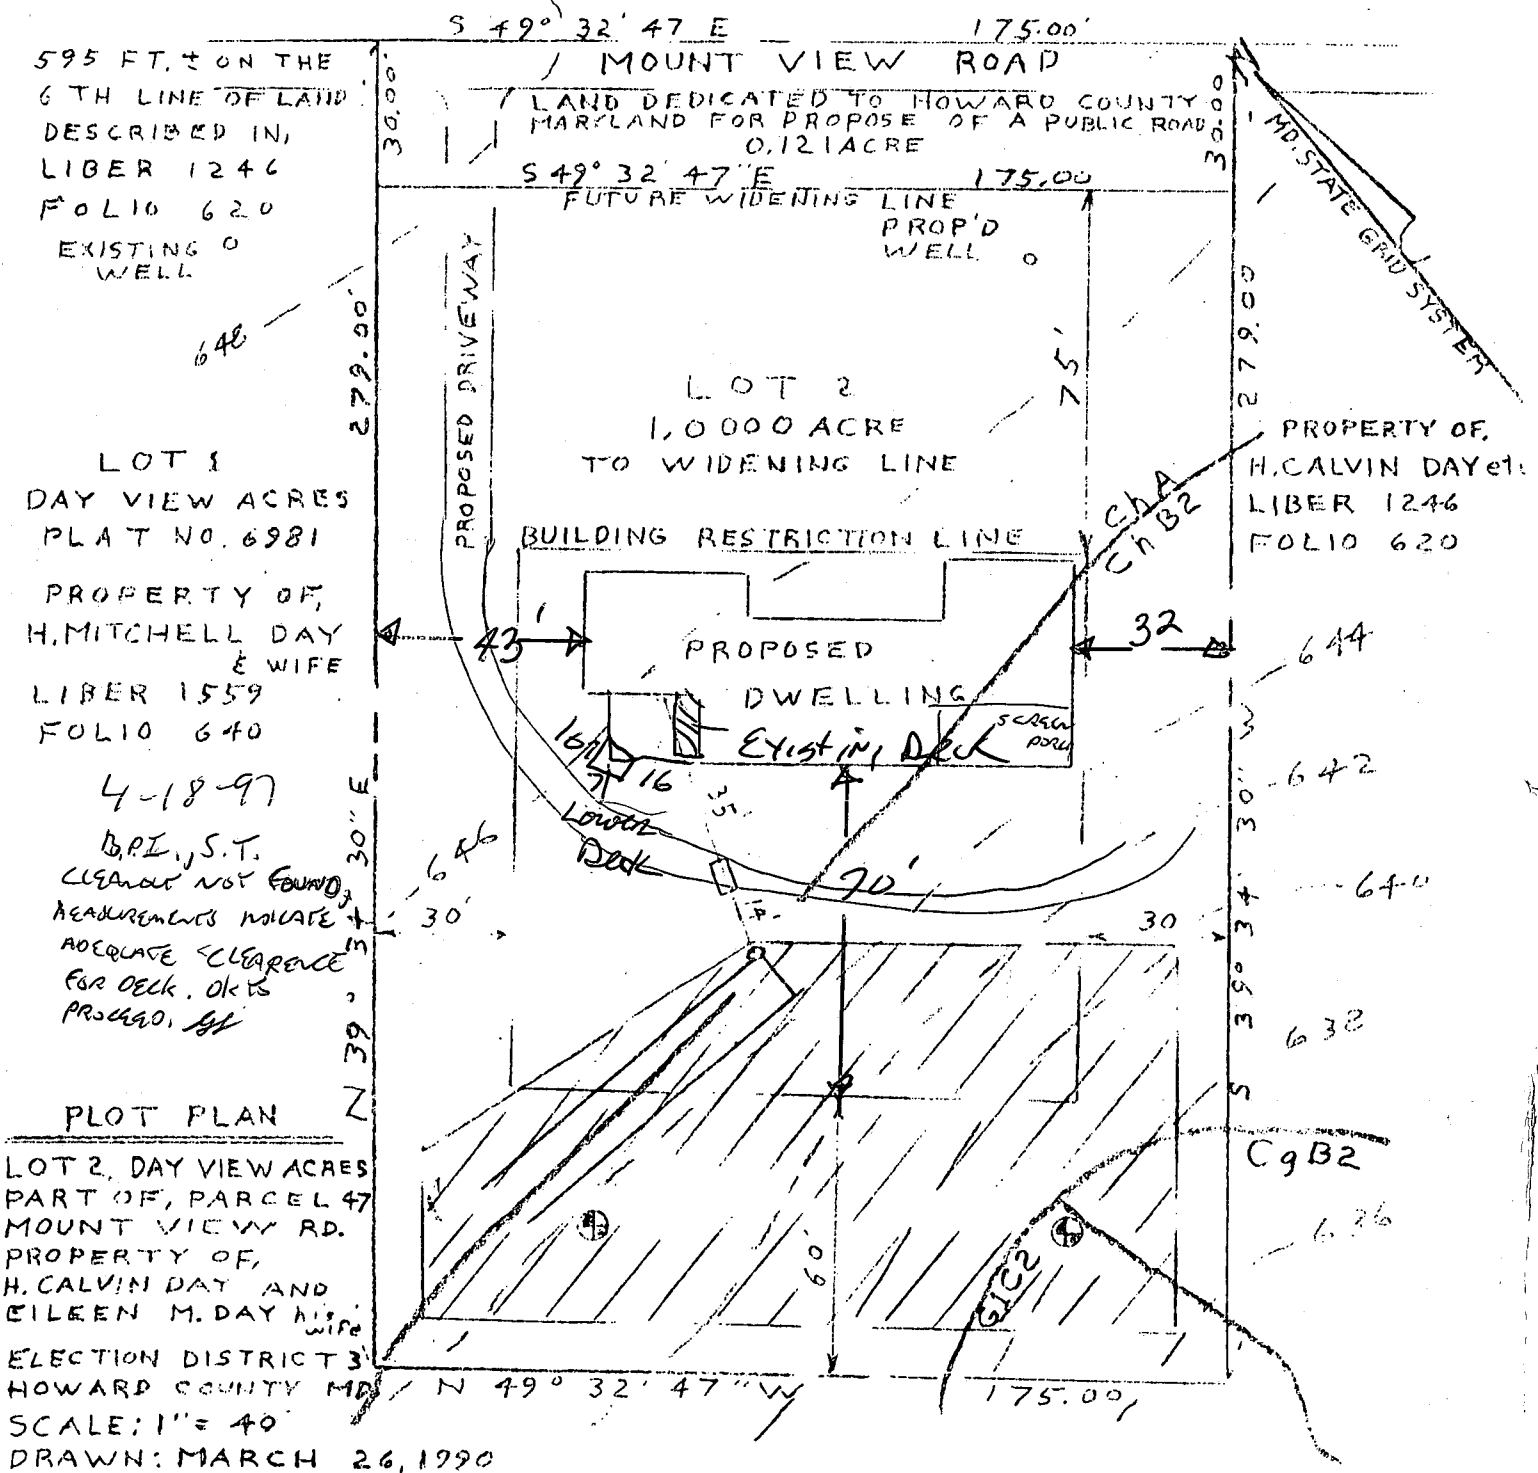 S 49° 32' 47 E 175.00'
MOUNT VIEW ROAD
LAND DEDICATED TO HOWARD COUNTY
MARYLAND FOR PROPOSE OF A PUBLIC ROAD
0.121 ACRE
S 49° 32' 47" E 175.00
FUTURE WIDENING LINE
PROP'D
WELL
30.00'
30.00
MD. STATE GRID SYSTEM
595 FT. ± ON THE
6 TH LINE OF LAND
DESCRIBED IN,
LIBER 1246
FOLIO 620
EXISTING
WELL
648
279.00'
279.00
PROPOSED DRIVEWAY
75'
LOT 2
1,0000 ACRE
TO WIDENING LINE
LOT 1
DAY VIEW ACRES
PLAT NO. 6981
PROPERTY OF,
H. MITCHELL DAY
& WIFE
LIBER 1559
FOLIO 640
PROPERTY OF,
H. CALVIN DAY et.
LIBER 1246
FOLIO 620
ChA
ChB2
BUILDING RESTRICTION LINE
43'
32
PROPOSED
DWELLING
SCREEN
PORCH
Existing Deck
16
16
7
Lower
Deck
35'
70'
644
642
640
638
636
646
4-18-97
B.P.I., S.T.
CLEANOUT NOT FOUND,
MEASUREMENTS INDICATE
ADEQUATE CLEARENCE
FOR DECK. OK TO
PROCEED.
30'
30
N 39° 34' 30" E
S 39° 34' 30" W
60'
CgB2
GlC2
PLOT PLAN
LOT 2, DAY VIEW ACRES
PART OF, PARCEL 47
MOUNT VIEW RD.
PROPERTY OF,
H. CALVIN DAY AND
EILEEN M. DAY his
wife
ELECTION DISTRICT 3
HOWARD COUNTY MD
SCALE: 1" = 40'
DRAWN: MARCH 26, 1990
N 49° 32' 47" W 175.00